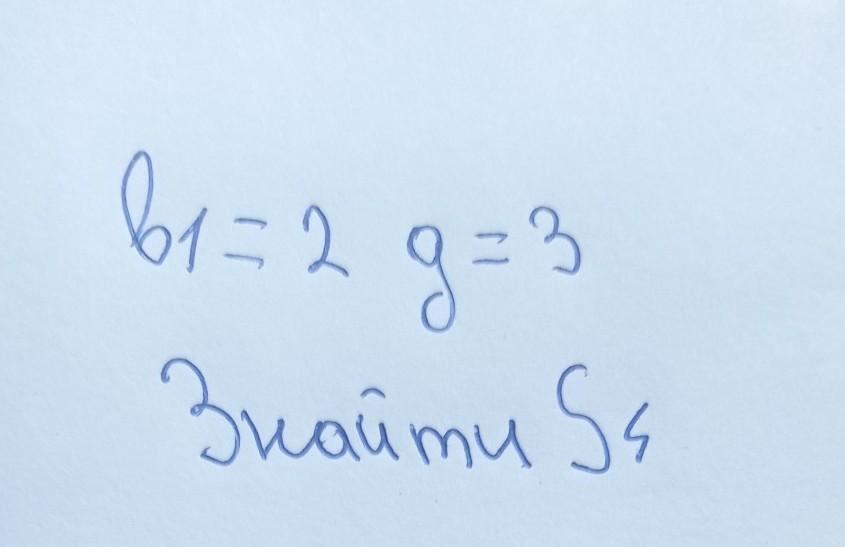 b1 = 2 g = 3
Знайти S4